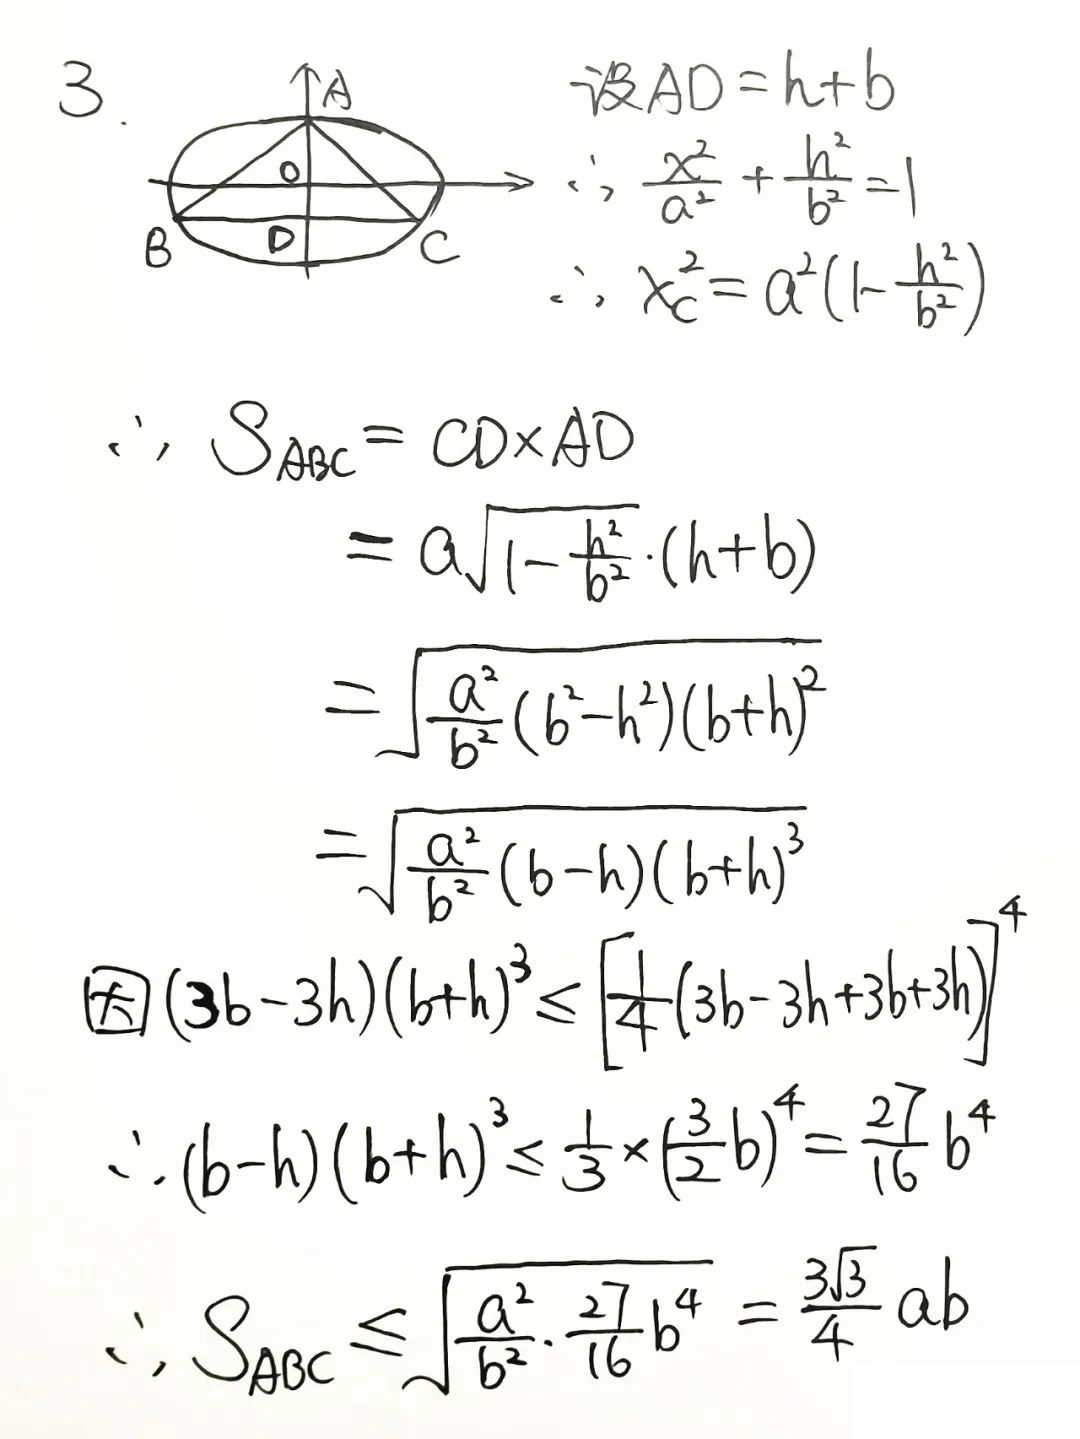 3.
A
O
B D C
设AD=h+b
∴ x²/a² + h²/b² = 1
∴ x_C² = a²(1-h²/b²)
∴ S_ABC = CD×AD
= a√(1-h²/b²)·(h+b)
= √(a²/b² (b²-h²)(b+h)²)
= √(a²/b² (b-h)(b+h)³)
因 (3b-3h)(b+h)³ ≤ [1/4(3b-3h+3b+3h)]⁴
∴ (b-h)(b+h)³ ≤ 1/3×(3/2 b)⁴ = 27/16 b⁴
∴ S_ABC ≤ √(a²/b² · 27/16 b⁴) = 3√3/4 ab